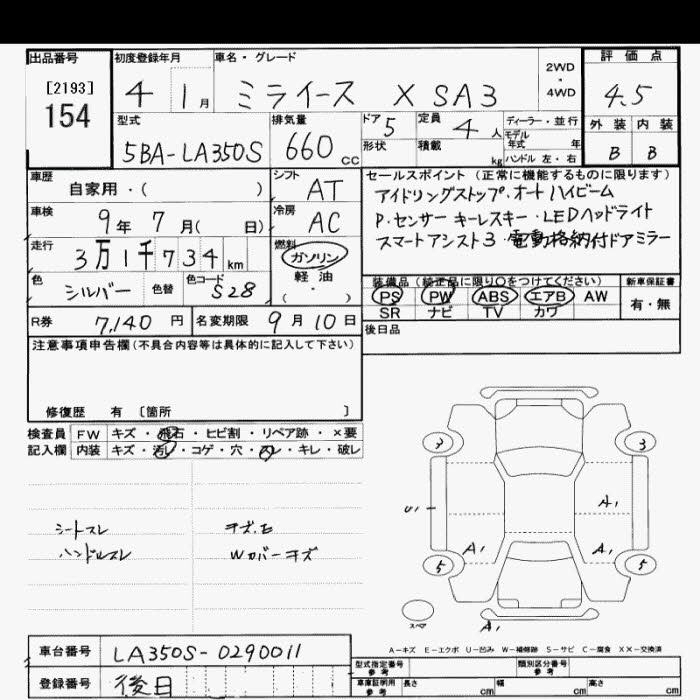 出品番号
[2193]
154
初度登録年月
4 1月
車名・グレード
ミライース X SA3
2WD
・
4WD
評価点
4.5
型式
5BA-LA350S
排気量
660 cc
ドア 5
形状
定員 4 人
積載 kg
ディーラー・並行
モデル
年式 年
ハンドル 左・右
外装 内装
B B
車歴
自家用・( )
シフト
AT
車検
9年 7月( 日)
冷房
AC
走行
3万1千734 km
燃料
ガソリン
軽・油
・( )
色
シルバー
色替
色コード
S28
R券
7,140円
名変期限
9月10日
セールスポイント(正常に機能するものに限ります)
アイドリングストップ・オートハイビーム
P・センサー キーレスキー・LEDヘッドライト
スマートアシスト3・電動格納付ドアミラー
装備品(純正品に限り○をつけてください)
PS PW ABS エアB AW
SR ナビ TV カワ
新車保証書
有・無
後日品
注意事項申告欄(不具合内容等は具体的に記入して下さい)
修復歴 有 [箇所 ]
検査員
記入欄
FW キズ・飛石・ヒビ割・リペア跡・×要
内装 キズ・汚レ・コゲ・穴・スレ・キレ・破レ
シートスレ
ハンドルスレ
Wカバーキズ
3 3
U1
A1
A1 A1
5 5
スペア
A1
A-キズ E-エクボ U-凹み W-補修跡 S-サビ C-腐食 XX-交換済
車台番号
LA350S-0290011
登録番号
後日
型式指定番号
参考
類別区分番号
参考
車庫証明用
参考
長さ cm
幅 cm
高さ cm